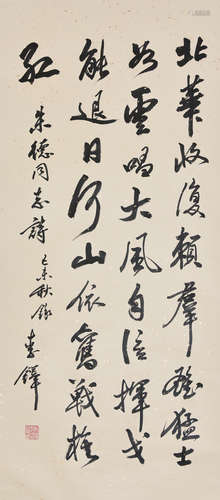 北華收復賴羣雄猛士
如雲唱大風自信揮戈
能退日河山依舊戰旗
紅
朱德同志詩 己未秋錄